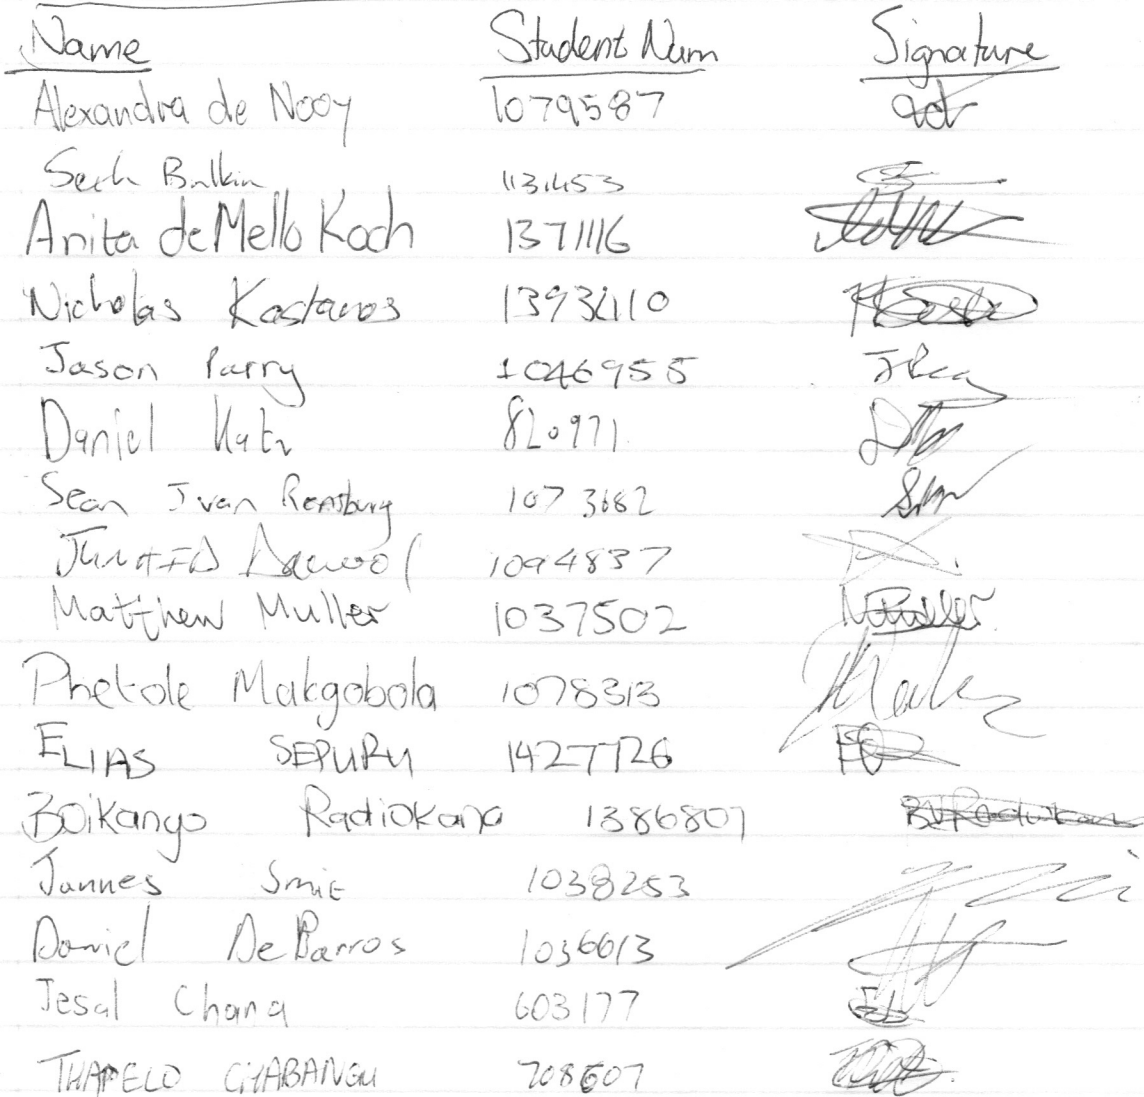 Name Student Num Signature
Alexandra de Nooy 1079587
Seth Bulkin 1131453
Anita de Mello Koch 1371116
Nicholas Kastanos 1393410
Jason Parry 1046955 JParry
Daniel Katz 820971
Sean J van Rensburg 1073682
JUNAID Dawood 1094837
Matthew Muller 1037502 MMuller
Phetole Makgobola 1078313
ELIAS SEPURU 1427726
Boikanyo Radiokana 1386807 BVRadiokana
Jannes Smit 1038253
Daniel De Barros 1036613
Jesal Chana 603177
THAPELO CHABANGU 708507